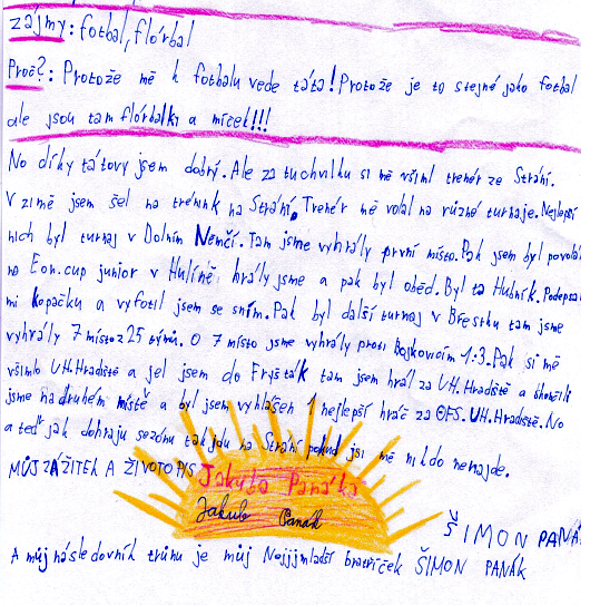 zájmy: fotbal, flórbal
Proč?: Protože mě k fotbalu vede táta! Protože je to stejné jako fotbal
ale jsou tam flórbalky a míček!!!
No díky tátovy jsem dobrý. Ale za tu chvilku si mě všiml trenér ze Strání.
V zimě jsem šel na trénink na Strání. Trenér mě volal na různé turnaje. Nejlepší
nich byl turnaj v Dolním Němčí. Tam jsme vyhrály první místo. Pak jsem byl povolá
na Eon.cup junior v Hulíně hrály jsme a pak byl oběd. Byl ta Hubník. Podepsa
mi kopačku a vyfotil jsem se sním. Pak byl další turnaj v Břestku tam jsme
vyhrály 7 místo z 25 týmů. O 7 místo jsme vyhrály proti Bojkovicím 1:3. Pak si mě
všimlo UH. Hradiště a jel jsem do Fryšták tam jsem hrál za UH. Hradiště a skončili
jsme na druhém místě a byl jsem vyhlášen 1 nejlepší hráč za OFS. UH. Hradiště. No
a teď jak dohraju sezónu tak jdu na Strání pokud jsi mě nikdo nenajde.
MŮJ ZÁŽITEK A ŽIVOTOPIS Jakuba Panáka
Jakub Panák
ŠIMON PANÁ
A můj následovník trůnu je můj Nejjmladší bratříček ŠIMON PANÁK